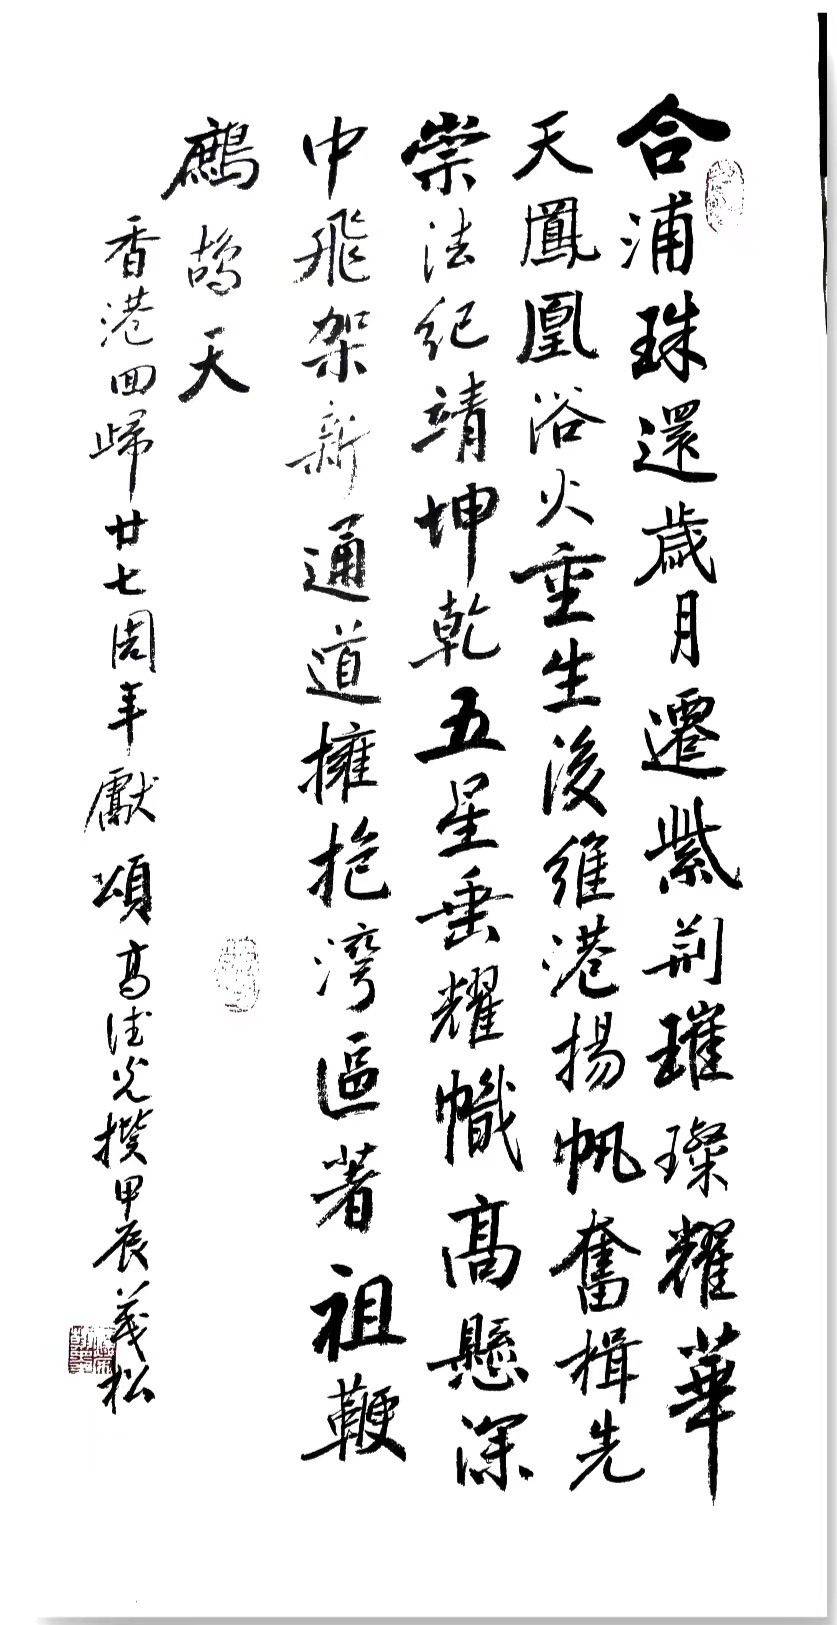 合浦珠還歲月遷紫荆璀璨耀華
天鳳凰浴火重生後維港揚帆奮楫先
崇法紀靖坤乾五星垂耀幟高懸深
中飛架新通道擁抱灣區著祖鞭
鷓鴣天
香港回歸廿七周年獻頌高德光撰甲辰義松